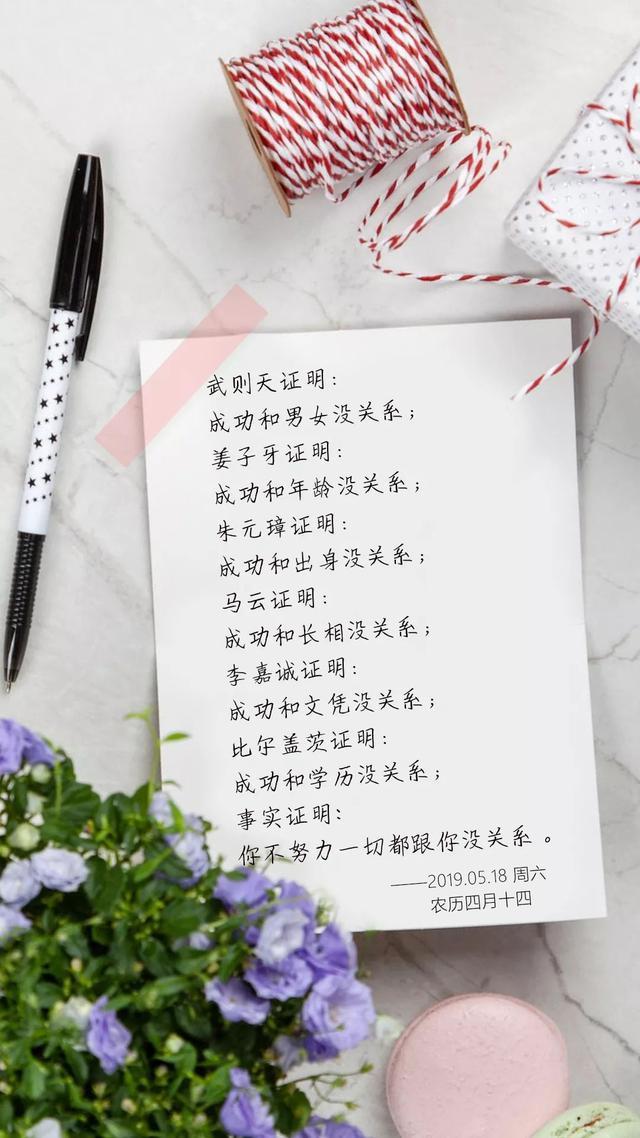 武则天证明：
成功和男女没关系；
姜子牙证明：
成功和年龄没关系；
朱元璋证明：
成功和出身没关系；
马云证明：
成功和长相没关系；
李嘉诚证明：
成功和文凭没关系；
比尔盖茨证明：
成功和学历没关系；
事实证明：
你不努力一切都跟你没关系。
——2019.05.18 周六
农历四月十四